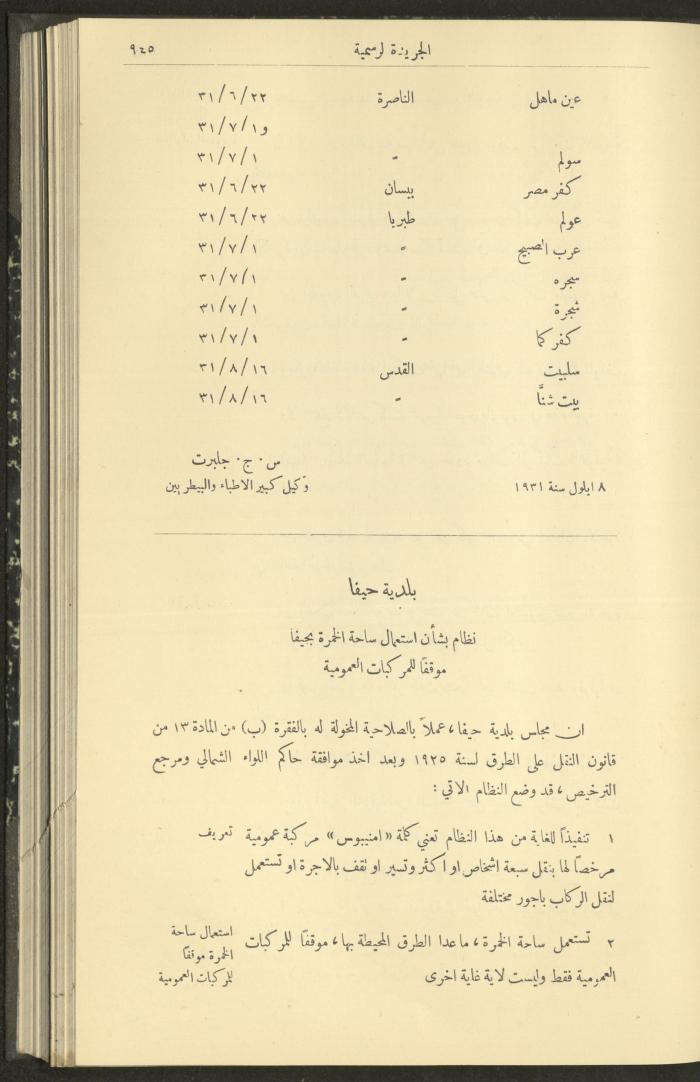 الجريدة الرسمية ٩٤٥
عين ماهل الناصرة ٣١/٦/٢٢
و٣١/٧/١
سولم " ٣١/٧/١
كفر مصر بيسان ٣١/٦/٢٢
عولم طبريا ٣١/٦/٢٢
عرب الصبيح " ٣١/٧/١
سجره " ٣١/٧/١
شجرة " ٣١/٧/١
كفر كما " ٣١/٧/١
سلبيت القدس ٣١/٨/١٦
بيت شنَّا " ٣١/٨/١٦
س٠ ج٠ جلبرت
٨ ايلول سنة ١٩٣١ وكيل كبير الاطباء والبيطريين
بلدية حيفا
نظام بشأن استعمال ساحة الخمرة بحيفا
موقفًا للمركبات العمومية
ان مجلس بلدية حيفا، عملاً بالصلاحية المخولة له بالفقرة (ب) من المادة ١٣ من
قانون النقل على الطرق لسنة ١٩٢٥ وبعد اخذ موافقة حاكم اللواء الشمالي ومرجع
الترخيص، قد وضع النظام الآتي:
١ تنفيذًا للغاية من هذا النظام تعني كلمة «امنيبوس» مركبة عمومية تعريف
مرخصًا لها بنقل سبعة اشخاص او اكثر وتسير او تقف بالاجرة او تستعمل
لنقل الركاب باجور مختلفة
٢ تستعمل ساحة الخمرة، ماعدا الطرق المحيطة بها، موقفًا للمركبات
العمومية فقط وليست لاية غاية اخرى
استعمال ساحة
الخمرة موقفًا
للمركبات العمومية